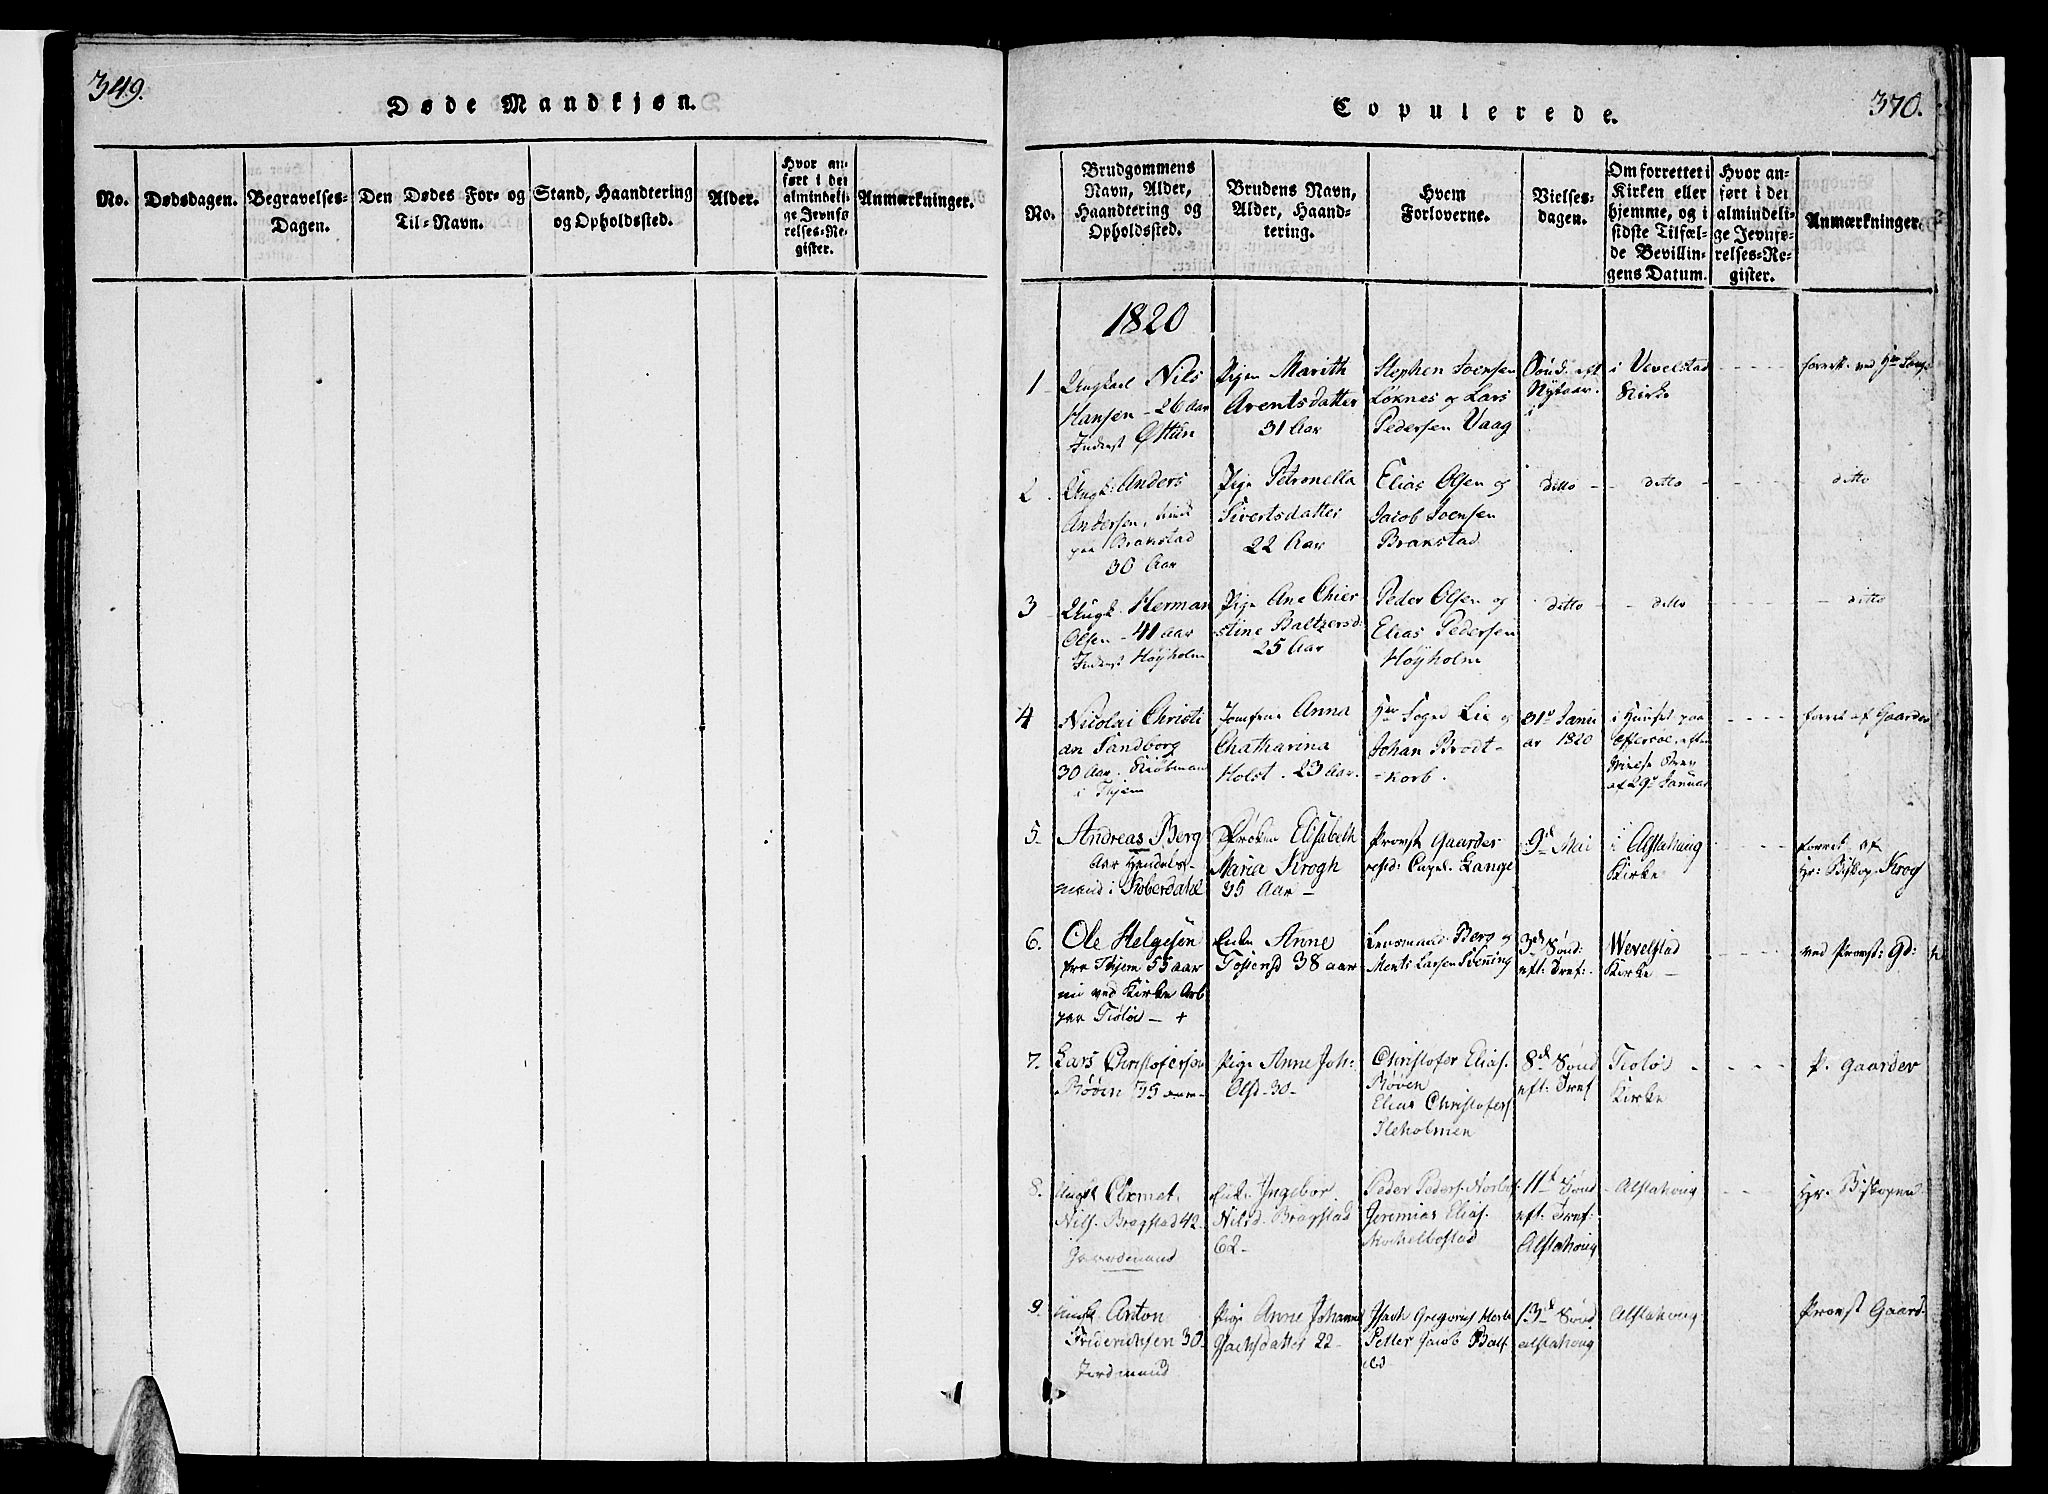 349.
Døde Mandkjøn.
No.
Dødsdagen.
Begravelses-
Dagen.
Den Dødes For- og
Til-Navn.
Stand, Haandtering
og Opholdssted.
Alder.
Hvor an-
ført i det
almindeli-
ge Jevnfø-
relses-Re-
gister.
Anmærkninger.
Copulerede.
370.
No.
Brudgommens
Navn, Alder,
Haandtering og
Opholdssted.
Brudens Navn,
Alder, Haand-
tering.
Hvem
Forloverne.
Vielses-
dagen.
Om forrettet i
Kirken eller
hjemme, og i
sidste Tilfæl-
de Bevillin-
gens Datum.
Hvor an-
ført i det
almindeli-
ge Jevnfø-
relses-Re-
gister.
Anmærkninger.
1820
1
Ungkarl Nils
Hansen - 26 Aar
Inderst
Pigen Marith
Arentsdatter
31 Aar
Stephen Joensen
Løknes og Lars
Pedersen Vaag
Sønd. eft
Nytaar.
i Vevelstad
Kirke
forrett. ved Hr Lange
2.
Ungk. Anders
Andersen,
paa Brakstad
30 Aar
Pige Petronella
Sivertsdatter
22 Aar
Elias Olsen og
Jacob Joensen
Brakstad
ditto
- ditto -
ditto
3
Ungk. Herman
Olsen - 41 aar
Inderst Høyholm
Pige Ane Chier
stine Baltzersd:
25 Aar
Peder Olsen og
Elias Pedersen
Høyholm
ditto -
- ditto
- ditto
4
Nicolai Christi
an Sandborg
30 Aar. Kiøbmand
i Thjem
Jomfrue Anna
Chatharina
Holst. 23 Aar.
Hr Sogn Lie og
Johan Brodt-
-korb.
31te Janu
ar 1820
i Huuset paa
efter
af 29de Januar
forret af Gaarder
5.
Andreas Berg
Aar Handels-
mand i
Frøken Elisabeth
Maria Krogh
35 Aar -
Provst Gaarder
resid: Capel. Lange
9de Mai
i Alstahoug
Kirke
forret af
Hr: Biskop Krog
6.
Ole Helgesen
fra Thjem 55 aar
nu ved Kirke Arb
paa Tiøtøe - +
Enke Anne
38 aar
Lensmand Berg og
Monts Larsen Svenning
3de Sønd:
eft: Tref:
Wevelstad
Kirke -
ved Provst: Gd:
7.
Lars Christofersen
Røøen
Pige Anne Joh:
Olsd - 30 -
Christofer Elias.
Røøen
Elias Christofers
8de Sønd
eft: Tref
Tiøtøe
Kirke
P. Gaarder
8.
Nils. Bragstad 42
Enke Ingebor
Nilsd. Bragstad
62 -
Peder Peders.
Jeremias Elias.
11te Sønd
eft: Tref:
Alstahoug
- Alstahoug
Hr. Biskopen
9.
Ungk Anton
Friderichsen 30 -
Jordmand
Pige Anne Johanna
Isachsdatter 22 -
Isach Gregorius
Petter Jacob
13de Sønd
alstahoug
Alstahoug
Provst Gaard-